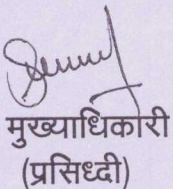 मुख्याधिकारी
(प्रसिध्दी)